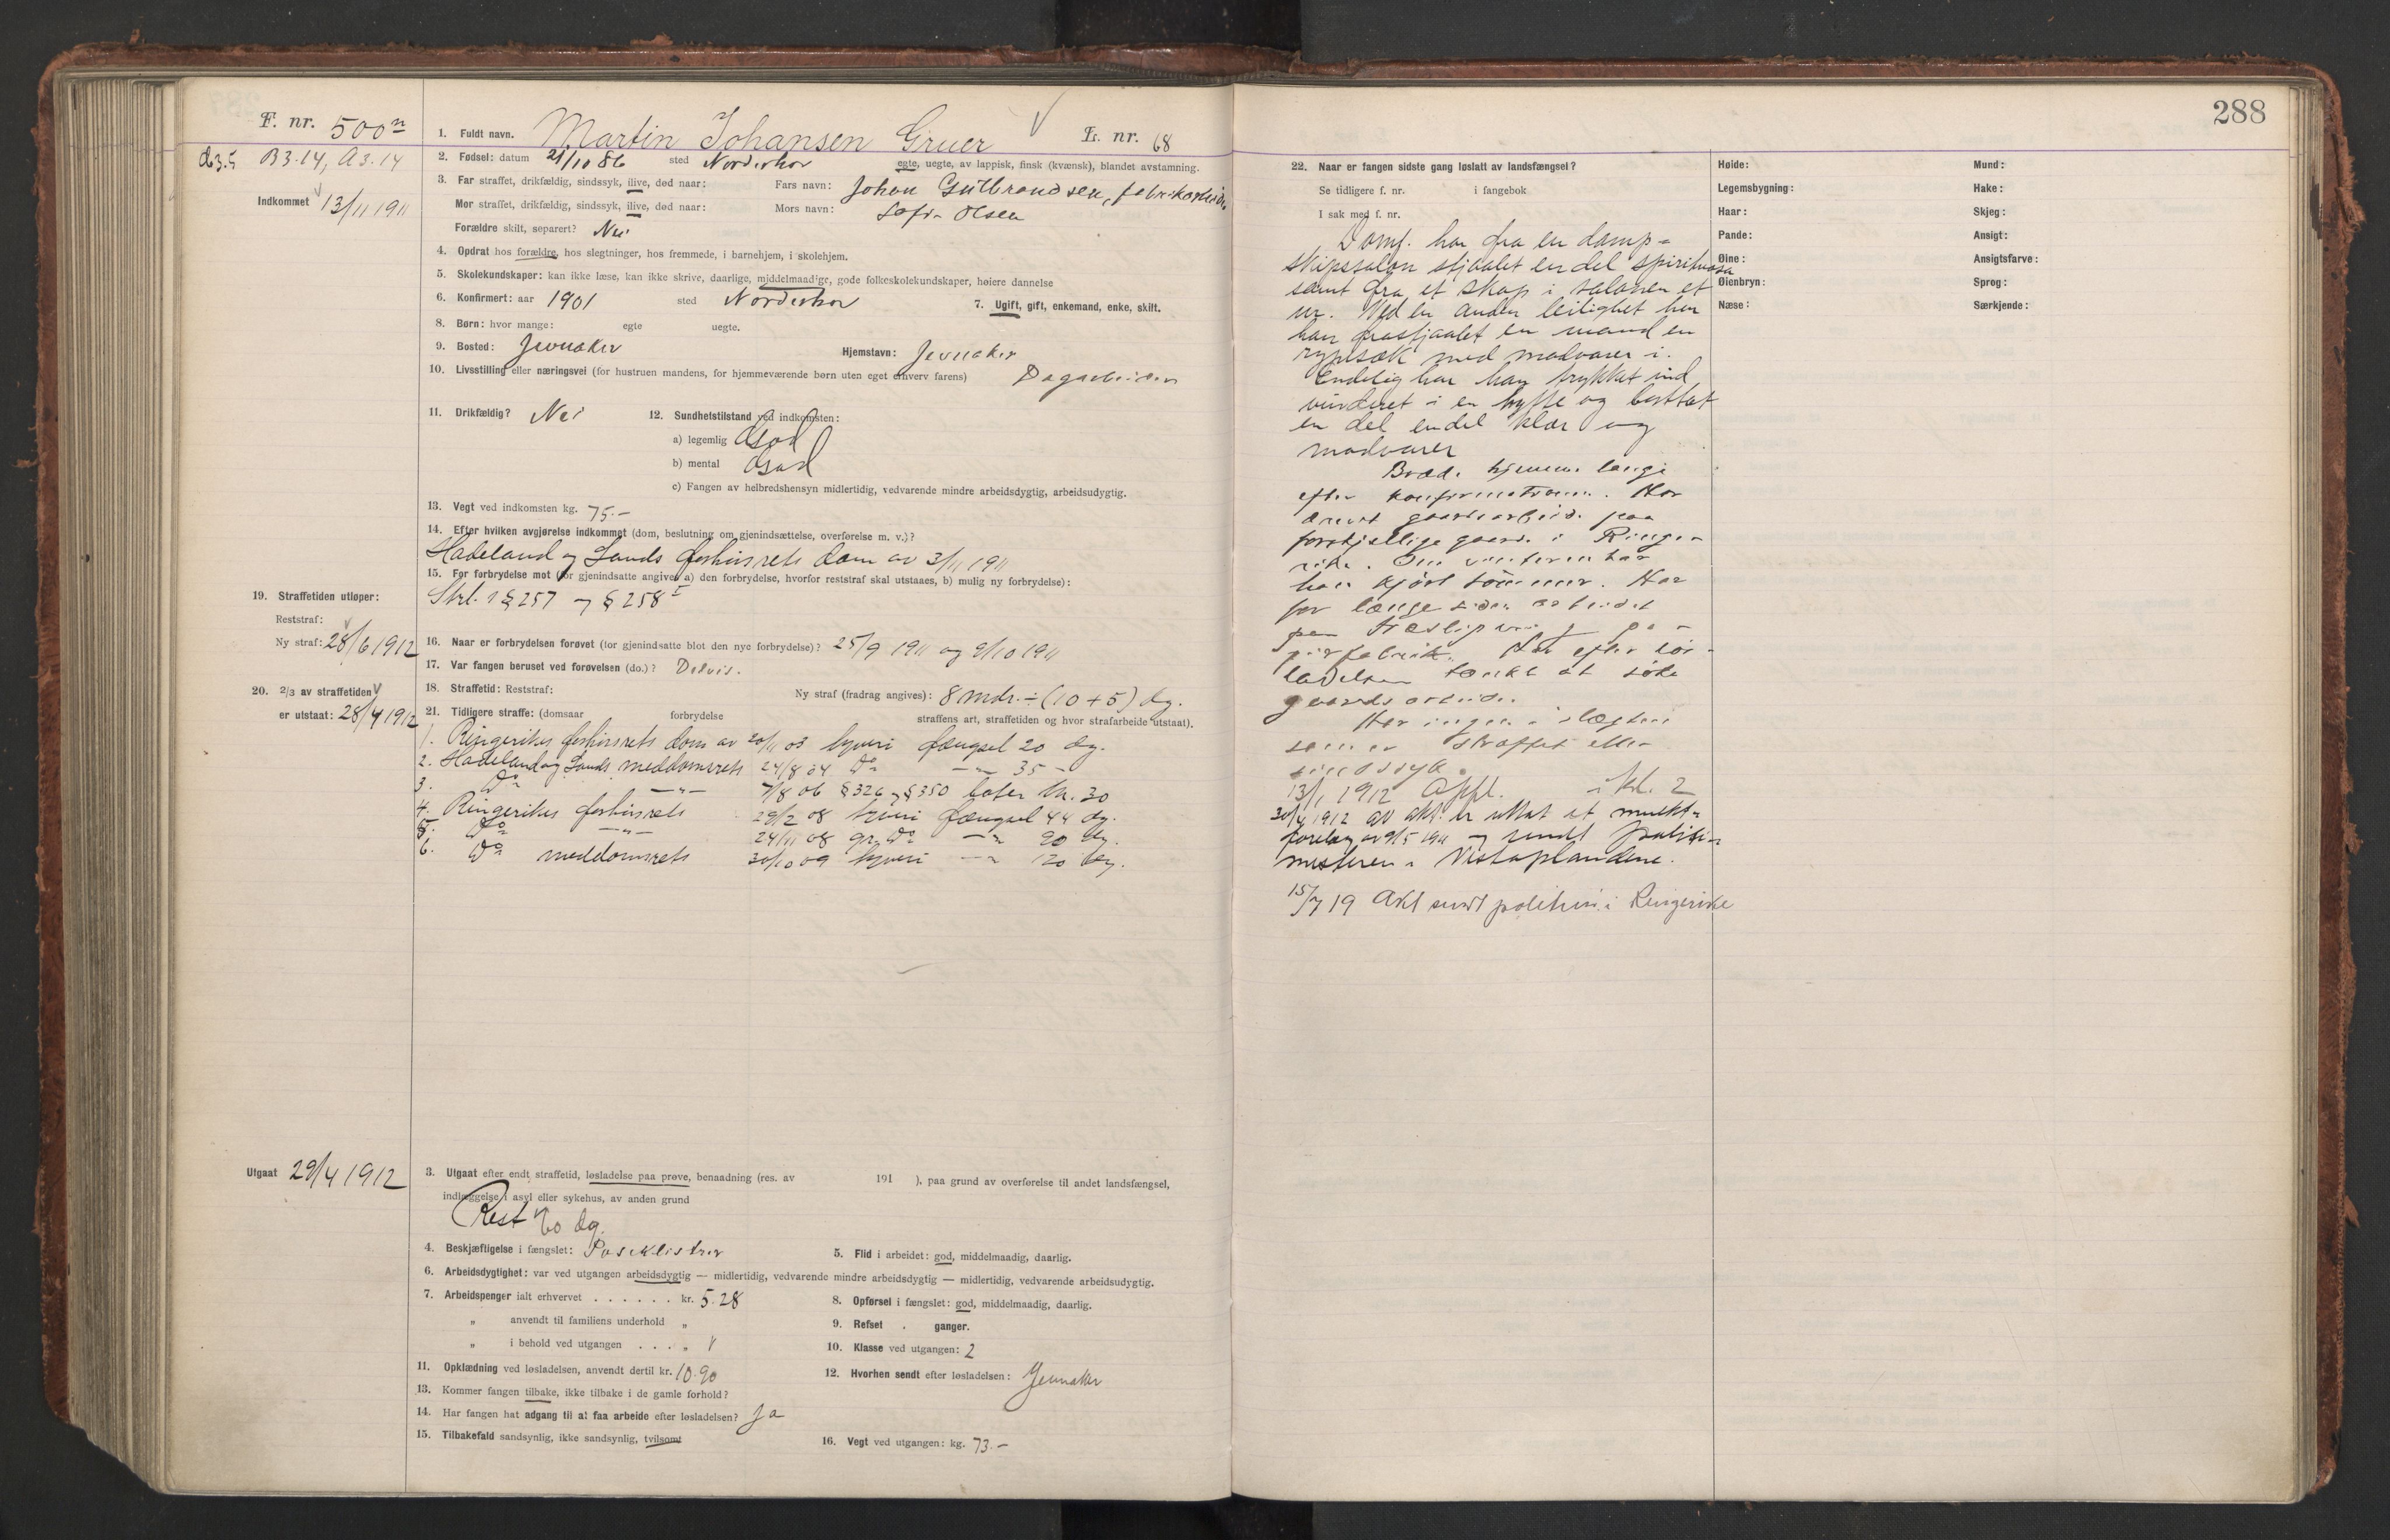 288
F. nr. 500
1. Fuldt navn. Martin Johansen Gruer
L. nr. 68
B3.14, A3.14
2. Fødsel: datum 21/10 86 sted Norderhov egte, uegte, av lappisk, finsk (kvænsk), blandet avstamning.
Indkommet 13/11 1911
3. Far straffet, drikfældig, sindssyk, ilive, død naar: Fars navn: Johan Gulbrandsen, fabrikarbeider
Mor straffet, drikfældig, sindssyk, ilive, død naar: Mors navn: Sofie Olsen
Forældre skilt, separert? Nei
4. Opdrat hos forældre, hos slegtninger, hos fremmede, i barnehjem, i skolehjem.
5. Skolekundskaper: kan ikke læse, kan ikke skrive, daarlige, middelmaadige, gode folkeskolekundskaper, høiere dannelse
6. Konfirmert: aar 1901 sted Norderhov 7. Ugift, gift, enkemand, enke, skilt.
8. Børn: hvor mange: egte uegte.
9. Bosted: Jevnaker Hjemstavn: Jevnaker
10. Livsstilling eller næringsvei (for hustruen mandens, for hjemmeværende børn uten eget erhverv farens) Dagarbeider
11. Drikfældig? Nei 12. Sundhetstilstand ved indkomsten:
a) legemlig God
b) mental God
c) Fangen av helbredshensyn midlertidig, vedvarende mindre arbeidsdygtig, arbeidsudygtig.
13. Vegt ved indkomsten kg. 75.-
14. Efter hvilken avgjørelse indkommet (dom, beslutning om gjenindsættelse, overførelse m. v.)?
Hadeland og Lands forhørsrets dom av 3/11 1911
15. For forbrydelse mot (for gjenindsatte angives a) den forbrydelse, hvorfor reststraf skal utstaaes, b) mulig ny forbrydelse):
Strl. § 257 og § 258
19. Straffetiden utløper:
Reststraf:
Ny straf: 28/6 1912
16. Naar er forbrydelsen forøvet (for gjenindsatte blot den nye forbrydelse)? 25/9 1911 og 9/10 1911
17. Var fangen beruset ved forøvelsen (do.)? Delvis.
18. Straffetid: Reststraf: Ny straf (fradrag angives): 8 mdr. ÷ (10 + 5) dg.
20. 2/3 av straffetiden
er utstaat: 28/4 1912
21. Tidligere straffe: (domsaar forbrydelse straffens art, straffetiden og hvor strafarbeide utstaat).
1. Ringerikes forhørsrets dom av 20/11 03 tyveri fængsel 20 dg.
2. Hadeland og Lands meddomsrets 24/8 04 Do -"- 35 -
3. Do -"- 7/8 06 § 326 og § 350 bøter kr. 30
4. Ringerikes forhørsrets 29/2 08 tyveri fængsel 44 dg.
5. Do -"- 24/11 08 gr. Do -"- 90 dg.
6. Do meddomsrets 30/10 09 tyveri -"- 120 dg.
Utgaat 29/4 1912
3. Utgaat efter endt straffetid, løsladelse paa prøve, benaadning (res. av 191 ), paa grund av overførelse til andet landsfængsel,
indlæggelse i asyl eller sykehus, av anden grund
Rest 60 dg.
4. Beskjæftigelse i fængslet: Poseklistrer 5. Flid i arbeidet: god, middelmaadig, daarlig.
6. Arbeidsdygtighet: var ved utgangen arbeidsdygtig — midlertidig, vedvarende mindre arbeidsdygtig — midlertidig, vedvarende arbeidsudygtig.
7. Arbeidspenger ialt erhvervet . . . . . . kr. 5.28 8. Opførsel i fængslet: god, middelmaadig, daarlig.
„ anvendt til familiens underhold „ 9. Refset . ganger.
„ i behold ved utgangen . . . „ 10. Klasse ved utgangen: 2
11. Opklædning ved løsladelsen, anvendt dertil kr. 10.90 12. Hvorhen sendt efter løsladelsen: Jevnaker
13. Kommer fangen tilbake, ikke tilbake i de gamle forhold?
14. Har fangen hat adgang til at faa arbeide efter løsladelsen? Ja
15. Tilbakefald sandsynlig, ikke sandsynlig, tvilsomt 16. Vegt ved utgangen: kg. 73.-
22. Naar er fangen sidste gang løslatt av landsfængsel?
Se tidligere f. nr. i fangebok
I sak med f. nr.
Domf. har fra en damp=
skipssalon stjaalet en del spirituosa
samt fra et skap i salonen et
ur. Ved en anden leilighet har
han frastjaalet en mand en
rypesæk med madvarer i.
Endelig har han trykket ind
vinduet i en hytte og borttat
en del endel klær og
madvarer
efter konfirmationen. Har
drevet gaardsarbeide paa
forskjellige gaarde i Ringe-
rike. Om vinteren har
han kjørt tømmer. Har
for længe siden arbeidet
paa træsliperi og pa-
pirfabrik. Har efter løs-
ladelsen tænkt at søke
gaardsarbeide.
Har ingen i slægten
som er straffet eller
sindssyk.
13/1 1912 Oppf. i kl. 2
30/4 1912 av akt. er uttat et mulkt-
forelæg av 9/5 1911 og sendt politi-
mesteren i Vestoplandene.
15/7 19 Akt sendt politim. i Ringerike
Høide: Mund:
Legemsbygning: Hake:
Haar: Skjeg:
Pande: Ansigt:
Øine: Ansigtsfarve:
Øienbryn: Sprog:
Næse: Særkjende: